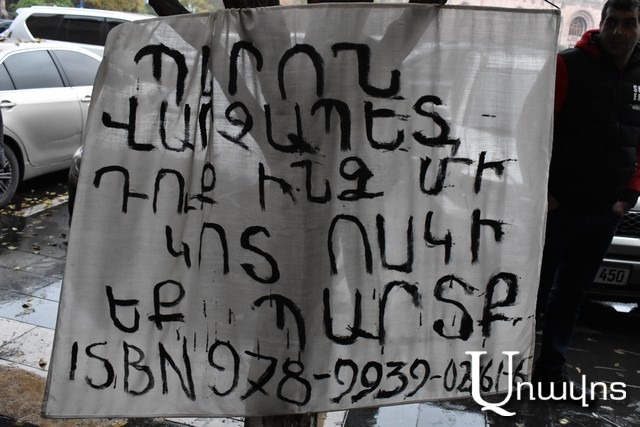 ՊԱՐՈՆ
ՎԱՐՉԱՊԵՏ,
ԴՈՔ ԻՆՁ ՄԻ
ԿՈՏ ՈՍԿԻ
ԵՔ ՊԱՐՏՔ
ISBN 978-9939-0261-6
Առավոտ
450